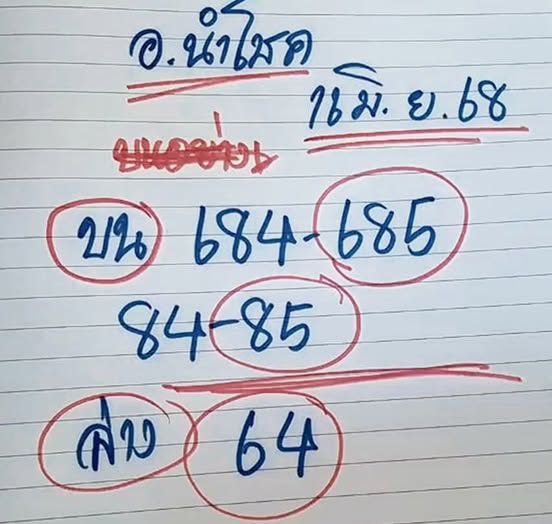 อ.นำโชค
1 มิ.ย.68
บน 684-685
84-85
ล่าง 64